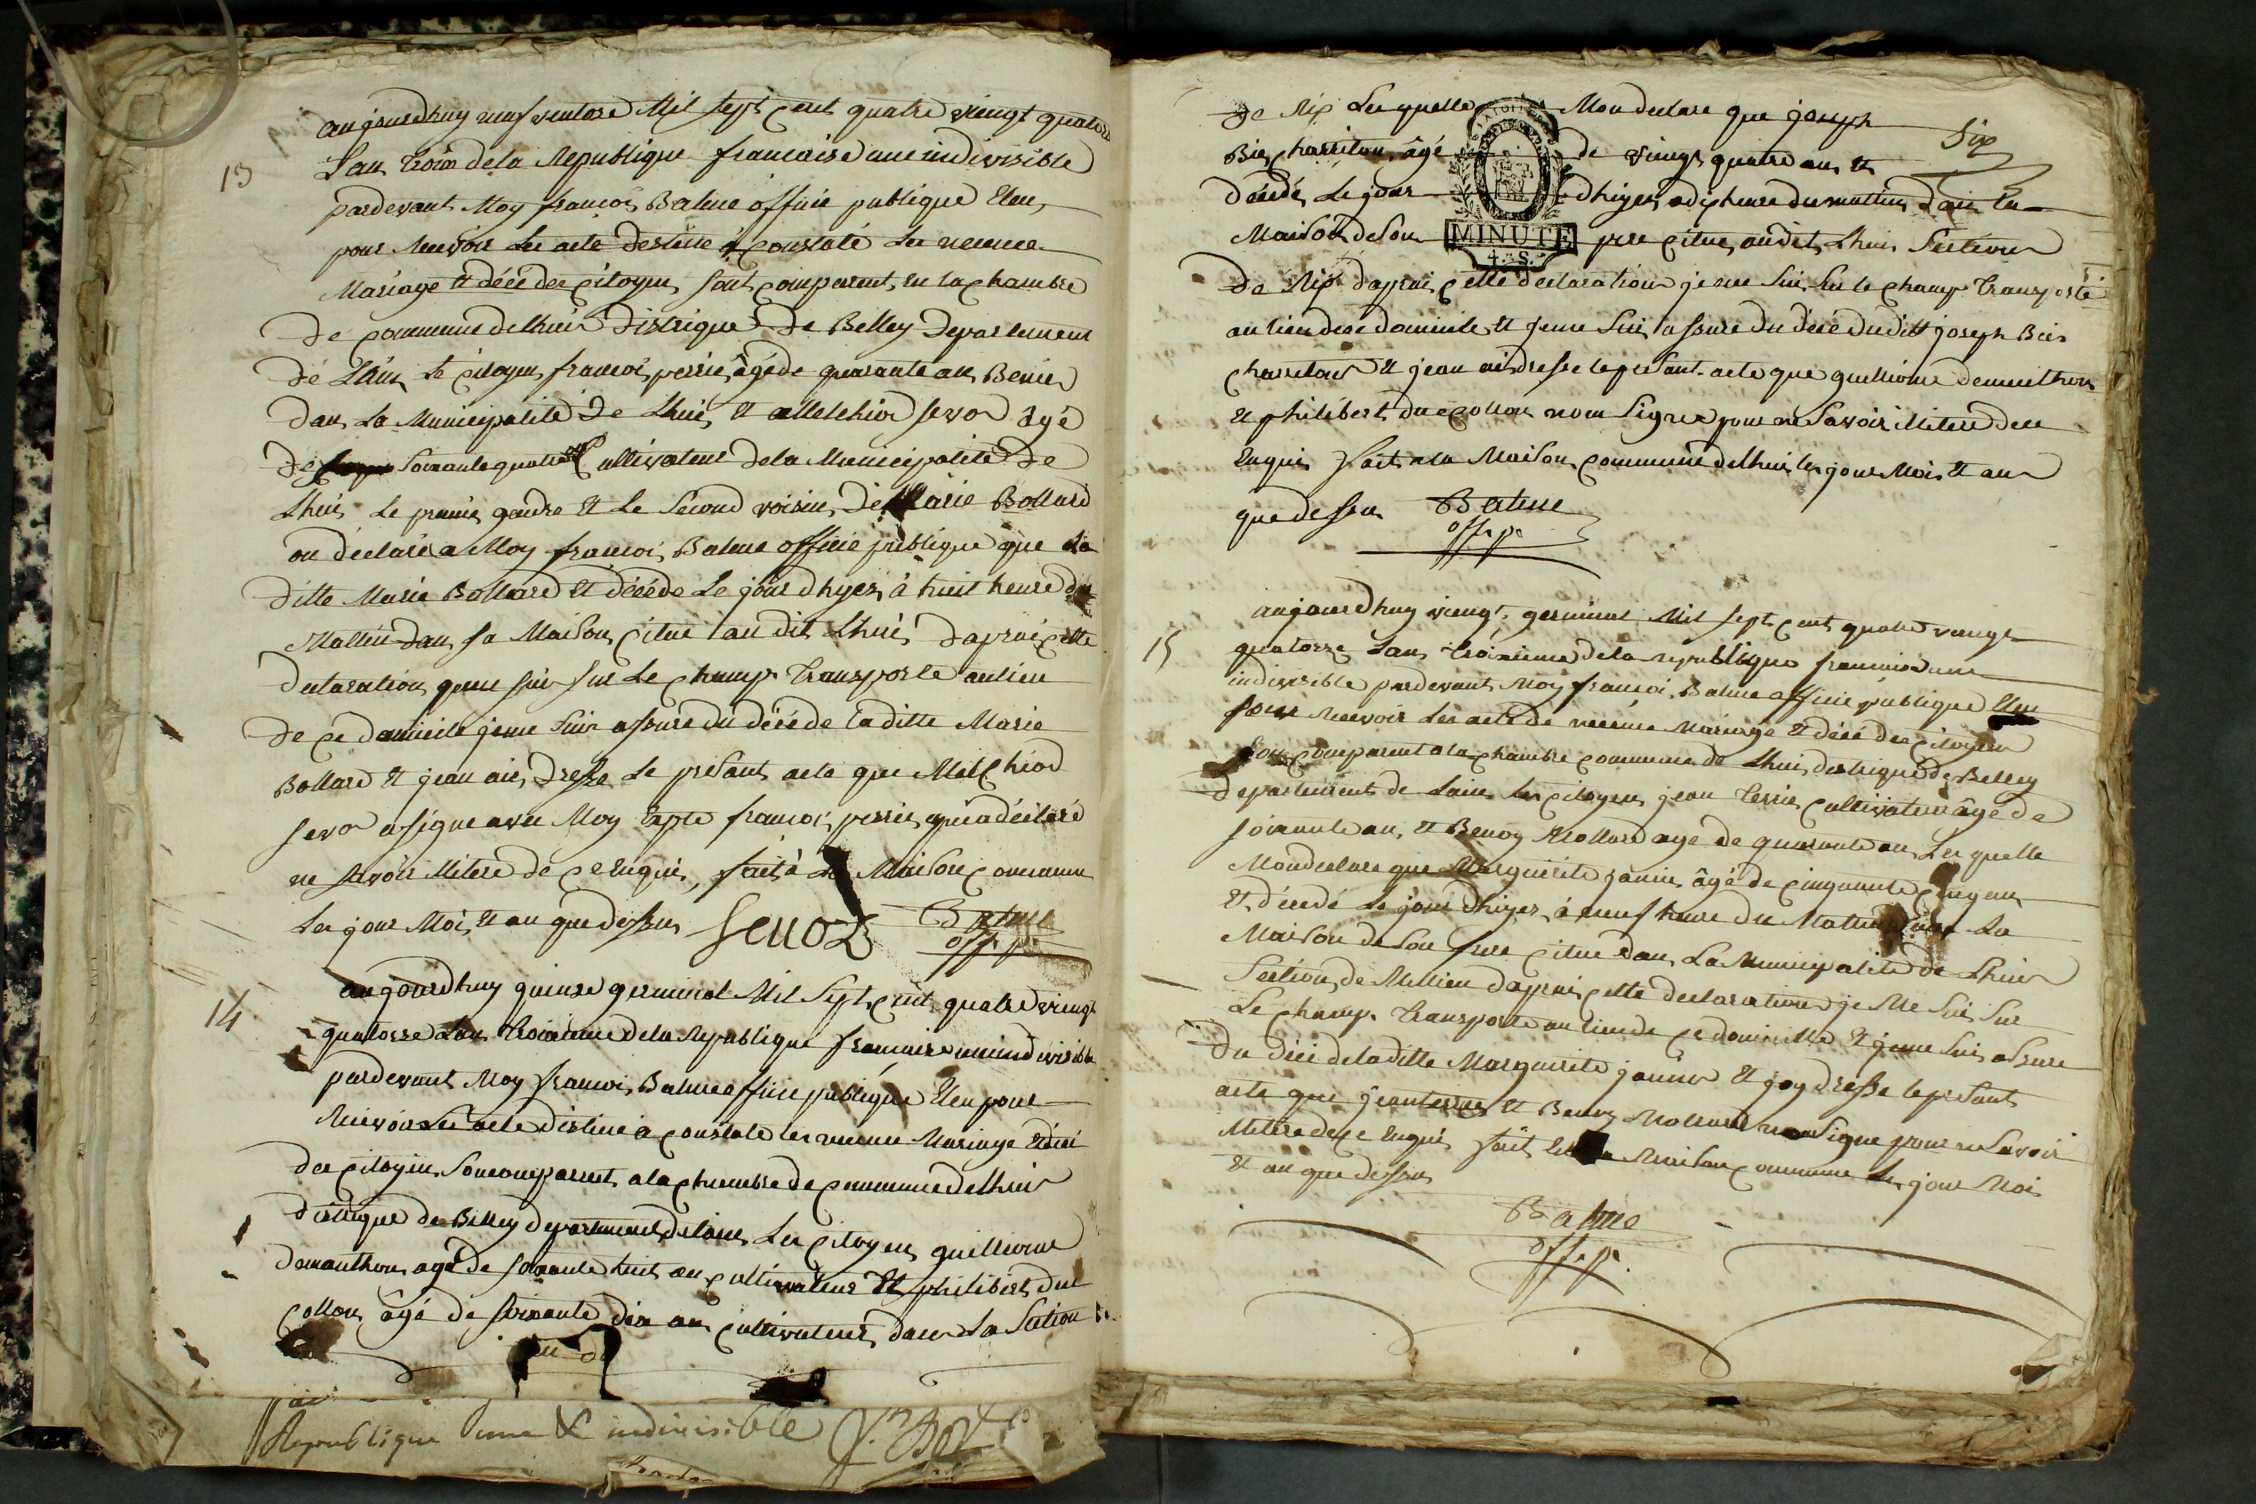 aujourdhuy neuf ventose Mil sept cent quatre vingt quatorse
13
Lan troie de la Republique francaise une indivisible
pardevant Moy francoi Balme officie publique Eleu
pour Recevoir Les acte destine a constaté Les necence
Mariage et décé des citoyens sont comparent en la chambre
de commune de Lhuis distrique de Belley departement
de Lain le citoyen francoi perrie âgé de quarante an
dans La Municipalité de Lhuis et Melchior sevoz âgé
de soixante quatre cultivateur de la Municipalité de
Lhuis Le premie gendre et Le second voisin de Marie Bollard
on déclaré a Moy francoi Balme officie publique que la
ditte Marie Bollard et décédé Le jour dhyer à huit heure du
Mattin dans sa Maison citue au dit Lhuis dapraie cette
declaration je me suis sur Le champ transporte au lieu
de ce domicile je me suis assure du décé de la ditte Marie
Bollard et jean aie dresse Le presant acte que Melchiod
sevoz a signe avec Moy Exepte francoi perrie qui a déclaré
ne savoir Militere de ce Enquis, fait à La Maison commune
Les jour Moi et an que dessus Sevoz Balme
off. p.
14
aujourdhuy quinse germinal Mil sept cent quatre vingt
quatorse Lan troisieme de la Republique francaise une indivisible
pardevant Moy francoi Balme officie publique Eleu pour
Recevoir Les acte distine a constate les necence Mariage et décé
des citoyens son comparent a la chambre de commune de Lhuis
distrique de Belley departement de Lain Les citoyens guilliome
demeuthon agé de soixante huit an cultivateur et philibert du
collon âgé de soixante dix an cultivateur dans La Section
Republique une & indivisible
de Rix Les quelle Mon declare que joseph
Six
Bie charriton âgé de vingt quatre an et
décédé Le jour dhyer a dix heure du mattin dans La
MINUTE
4. S.
Maison de son pere citue audit Lhuis Section
de Rix dapraie cette declaration je me suis sur le champ transporté
au lieu de ce domicile et je me suis assure du décé dudit joseph Bie
charriton et jean aie dresse le presant acte que guilliome demeuthon
et philibert du collon nom signe pour ne savoir Militere de ce
enquis fait a la Maison commune de Lhuis les jour Mois et an
que dessus Balme
off. p.
15
aujourdhuy vingt germinal Mil sept cent quatre vingt
quatorse Lan troisieme de la republique francaise une
indivisible pardevant Moy francoi Balme officie publique Eleu
pour Recevoir Les acte de necence Mariage et décé des citoyens
son comparent a la chambre commune de Lhuis distrique de Belley
departement de Lain Les citoyens jean terrie cultivateur âgé de
soixante an et Benoy Mollard agé de quarante an Les quelle
Mon declare que Marguerite janin âgé de cinquante cinq an
et décédé Le jour dhyer à neuf heure du Mattin dans La
Maison de son frere citue dans La Municipalité de Lhuis
Section de Millieu dapraie cette declaration je Me suis sur
Le champ transporte au lieu de ce domicille et je me suis assure
du décé de la ditte Marguerite janin et jay dresse le presant
acte que jean terrie et Benoy Mollard non signe pour ne savoir
Militere de ce Enquis fait Maison commune Les jour Moi
et an que dessus
Balme
off. p.